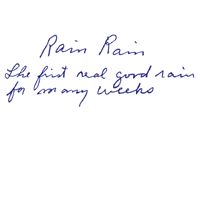 Rain Rain
The first real good rain
for many weeks